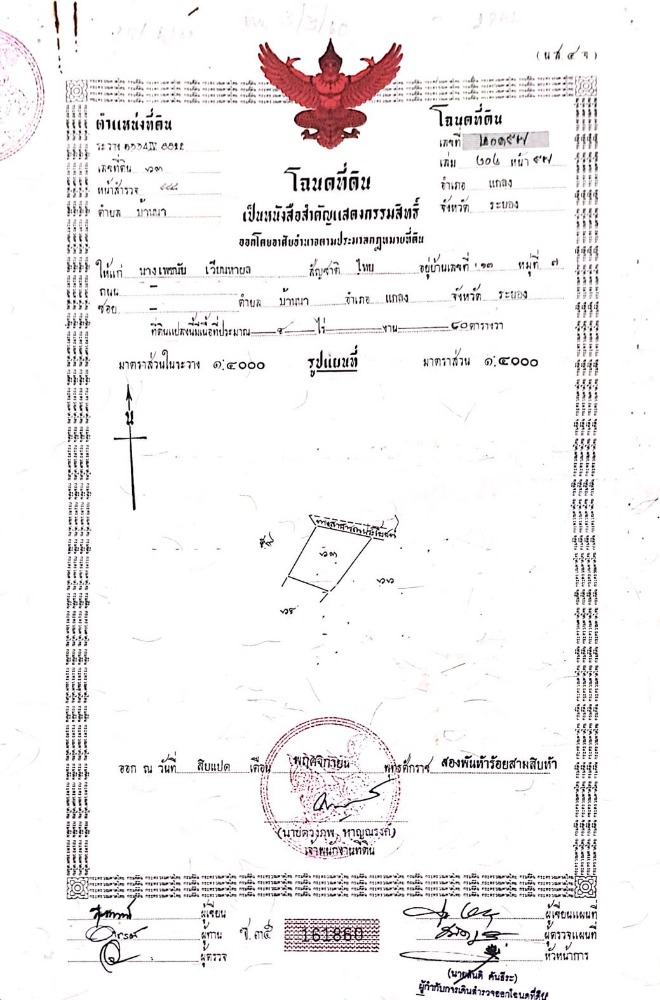 (น.ส. ๔ จ)
ตำแหน่งที่ดิน
ระวาง
เลขที่ดิน ๖๓
หน้าสำรวจ
ตำบล บ้านนา
โฉนดที่ดิน
เลขที่
เล่ม ๒๐๒ หน้า ๙๗
อำเภอ แกลง
จังหวัด ระยอง
โฉนดที่ดิน
เป็นหนังสือสำคัญแสดงกรรมสิทธิ์
ออกโดยอาศัยอำนาจตามประมวลกฎหมายที่ดิน
ให้แก่ สัญชาติ ไทย อยู่บ้านเลขที่ หมู่ที่ ๗
ถนน —
ซอย — ตำบล บ้านนา อำเภอ แกลง จังหวัด ระยอง
ที่ดินแปลงนี้มีเนื้อที่ประมาณ ไร่ งาน ๘๐ ตารางวา
มาตราส่วนในระวาง ๑:๔๐๐๐ รูปแผนที่ มาตราส่วน ๑:๔๐๐๐
น
ทางสาธารณประโยชน์
๖๓
๖๒
๖๔
ออก ณ วันที่ สิบแปด เดือน พฤศจิกายน พุทธศักราช สองพันห้าร้อยสามสิบห้า
เจ้าพนักงานที่ดิน
ผู้เขียน
ผู้ทาน
ผู้ตรวจ
ช. ๓๕
161860
ผู้เขียนแผนที่
ผู้ตรวจแผนที่
หัวหน้าการ
(นายสันติ คันธีระ)
ผู้กำกับการเดินสำรวจออกโฉนดที่ดิน